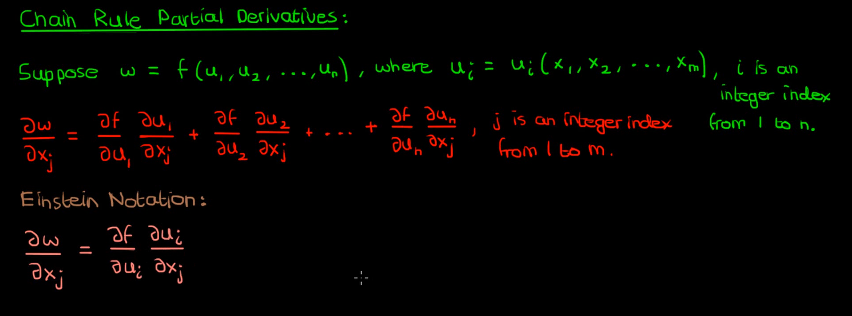 Chain Rule Partial Derivatives:
Suppose w = f(u₁, u₂, ..., uₙ), where uᵢ = uᵢ(x₁, x₂, ..., xₘ), i is an integer index from 1 to n.
∂w/∂xⱼ = ∂f/∂u₁ ∂u₁/∂xⱼ + ∂f/∂u₂ ∂u₂/∂xⱼ + ... + ∂f/∂uₙ ∂uₙ/∂xⱼ, j is an integer index from 1 to m.
Einstein Notation:
∂w/∂xⱼ = ∂f/∂uᵢ ∂uᵢ/∂xⱼ